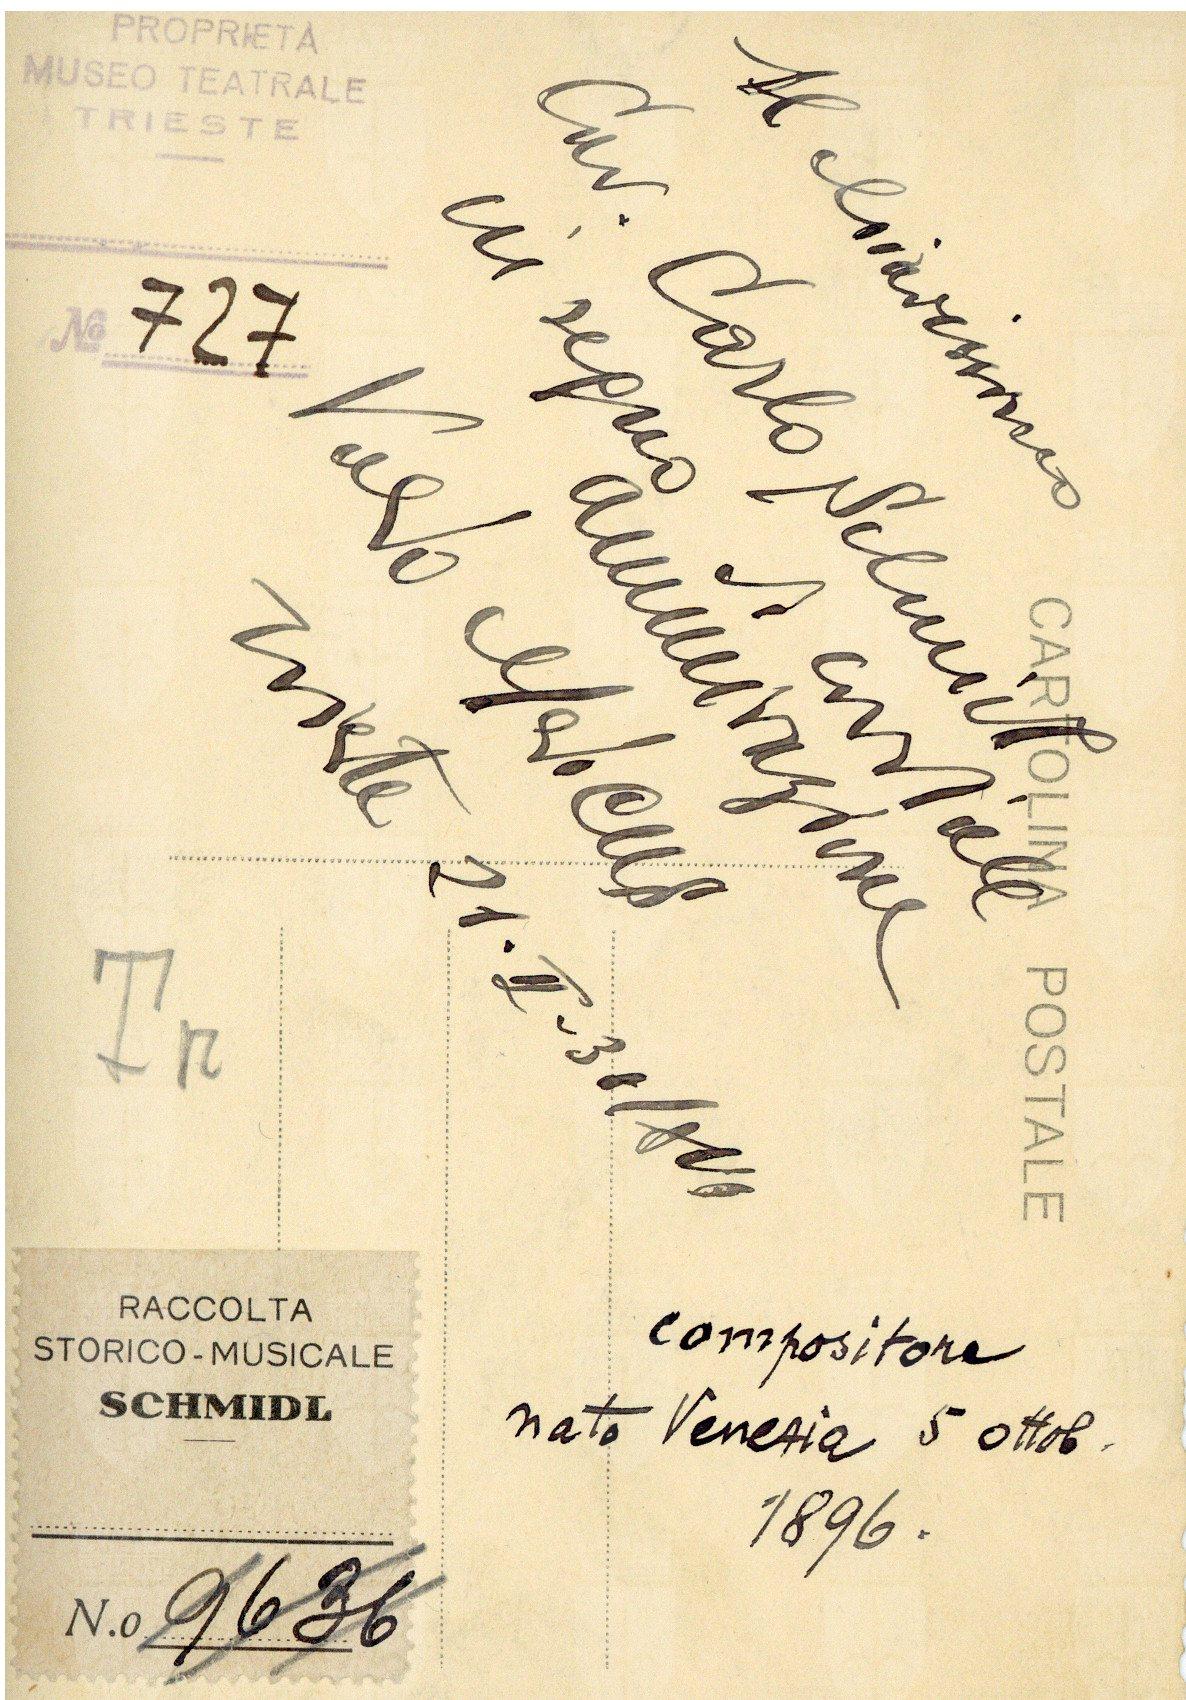 PROPRIETÀ
MUSEO TEATRALE
TRIESTE
№ 727
Al chiarissimo
Cav. Carlo Schmidl
in segno di cordiale
ammirazione
Trieste 21.
CARTOLINA POSTALE
Tr
RACCOLTA
STORICO-MUSICALE
SCHMIDL
N.o 9636
compositore
nato Venezia 5 ottob.
1896.